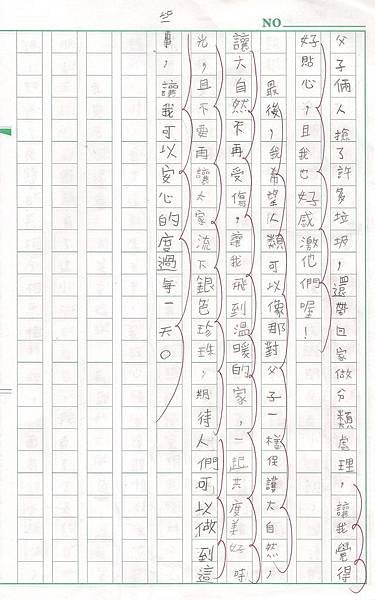 NO
父子倆人撿了許多垃圾，還帶回家做分類處理，讓我覺得
好貼心，且我也好感激他們喔！
最後，我希望人類可以像那對父子一樣保護大自然，
讓大自然不再受傷，讓我飛到溫暖的家，一起共度美好時
光，且不要再讓大家流下銀色珍珠，期待人們可以做到這
些事，讓我可以安心的度過每一天。